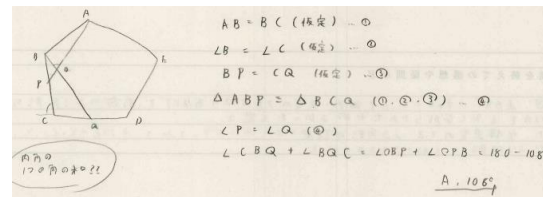 A
B
E
P
C
Q
D
内角の
1つの角の和!!
AB = BC (仮定) … ①
∠B = ∠C (仮定) … ②
BP = CQ (仮定) … ③
△ABP = △BCQ (①.②.③) … ④
∠P = ∠Q (④)
∠CBQ + ∠BQC = ∠OBP + ∠OPB = 180 - 108
A. 108°